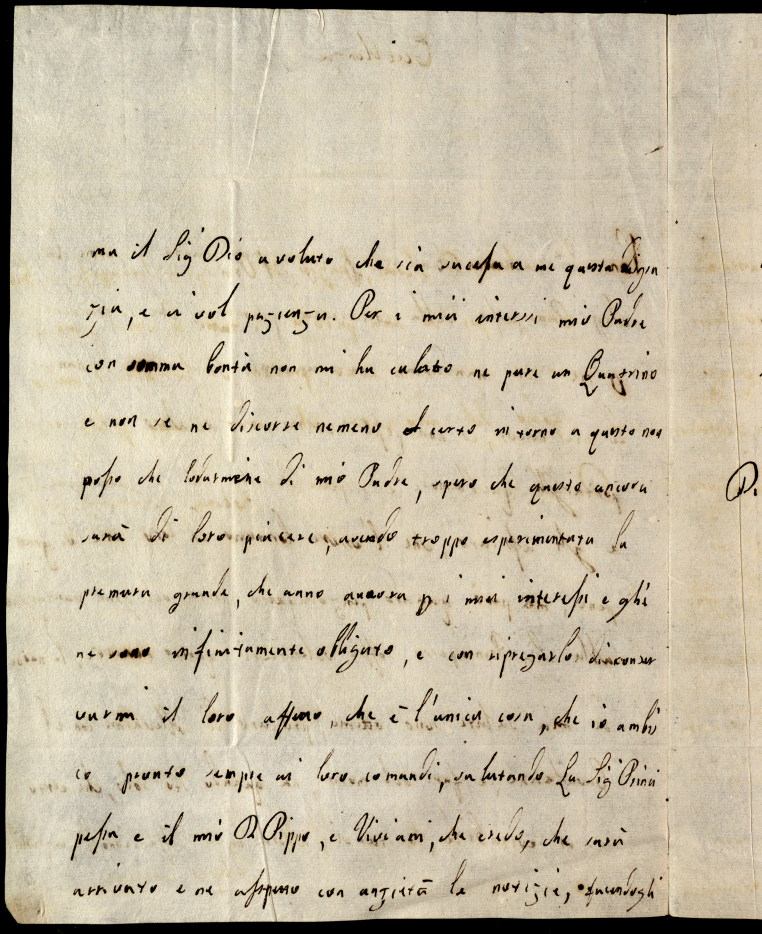 ma il Sig Dio a voluto che sia sucessa a me questa disgra
zia, e ci vol pazienza. Per i miei interssi mio Padre
con somma bontà non mi ha calato ne pure un Quatrino
e non se ne discorre nemeno et certo intorno a questo non
posso che lodarmene di mio Padre, spero che questo ancora
sarà di loro piacere, avendo troppo esperimentata la
premura grande, che anno ancora p i miei interessi e ghe
ne sono infinitamente obbligato, e con ripregarlo di conser
varmi il loro affetto, che è l'unica cosa, che io ambi
co pronto sempre ai loro comandi, salutando La Sig Princi
pessa e il mio D Pippo, e Viviani, che credo, che sarà
arrivato e ne aspetto con anzietà le notizie, facendogli